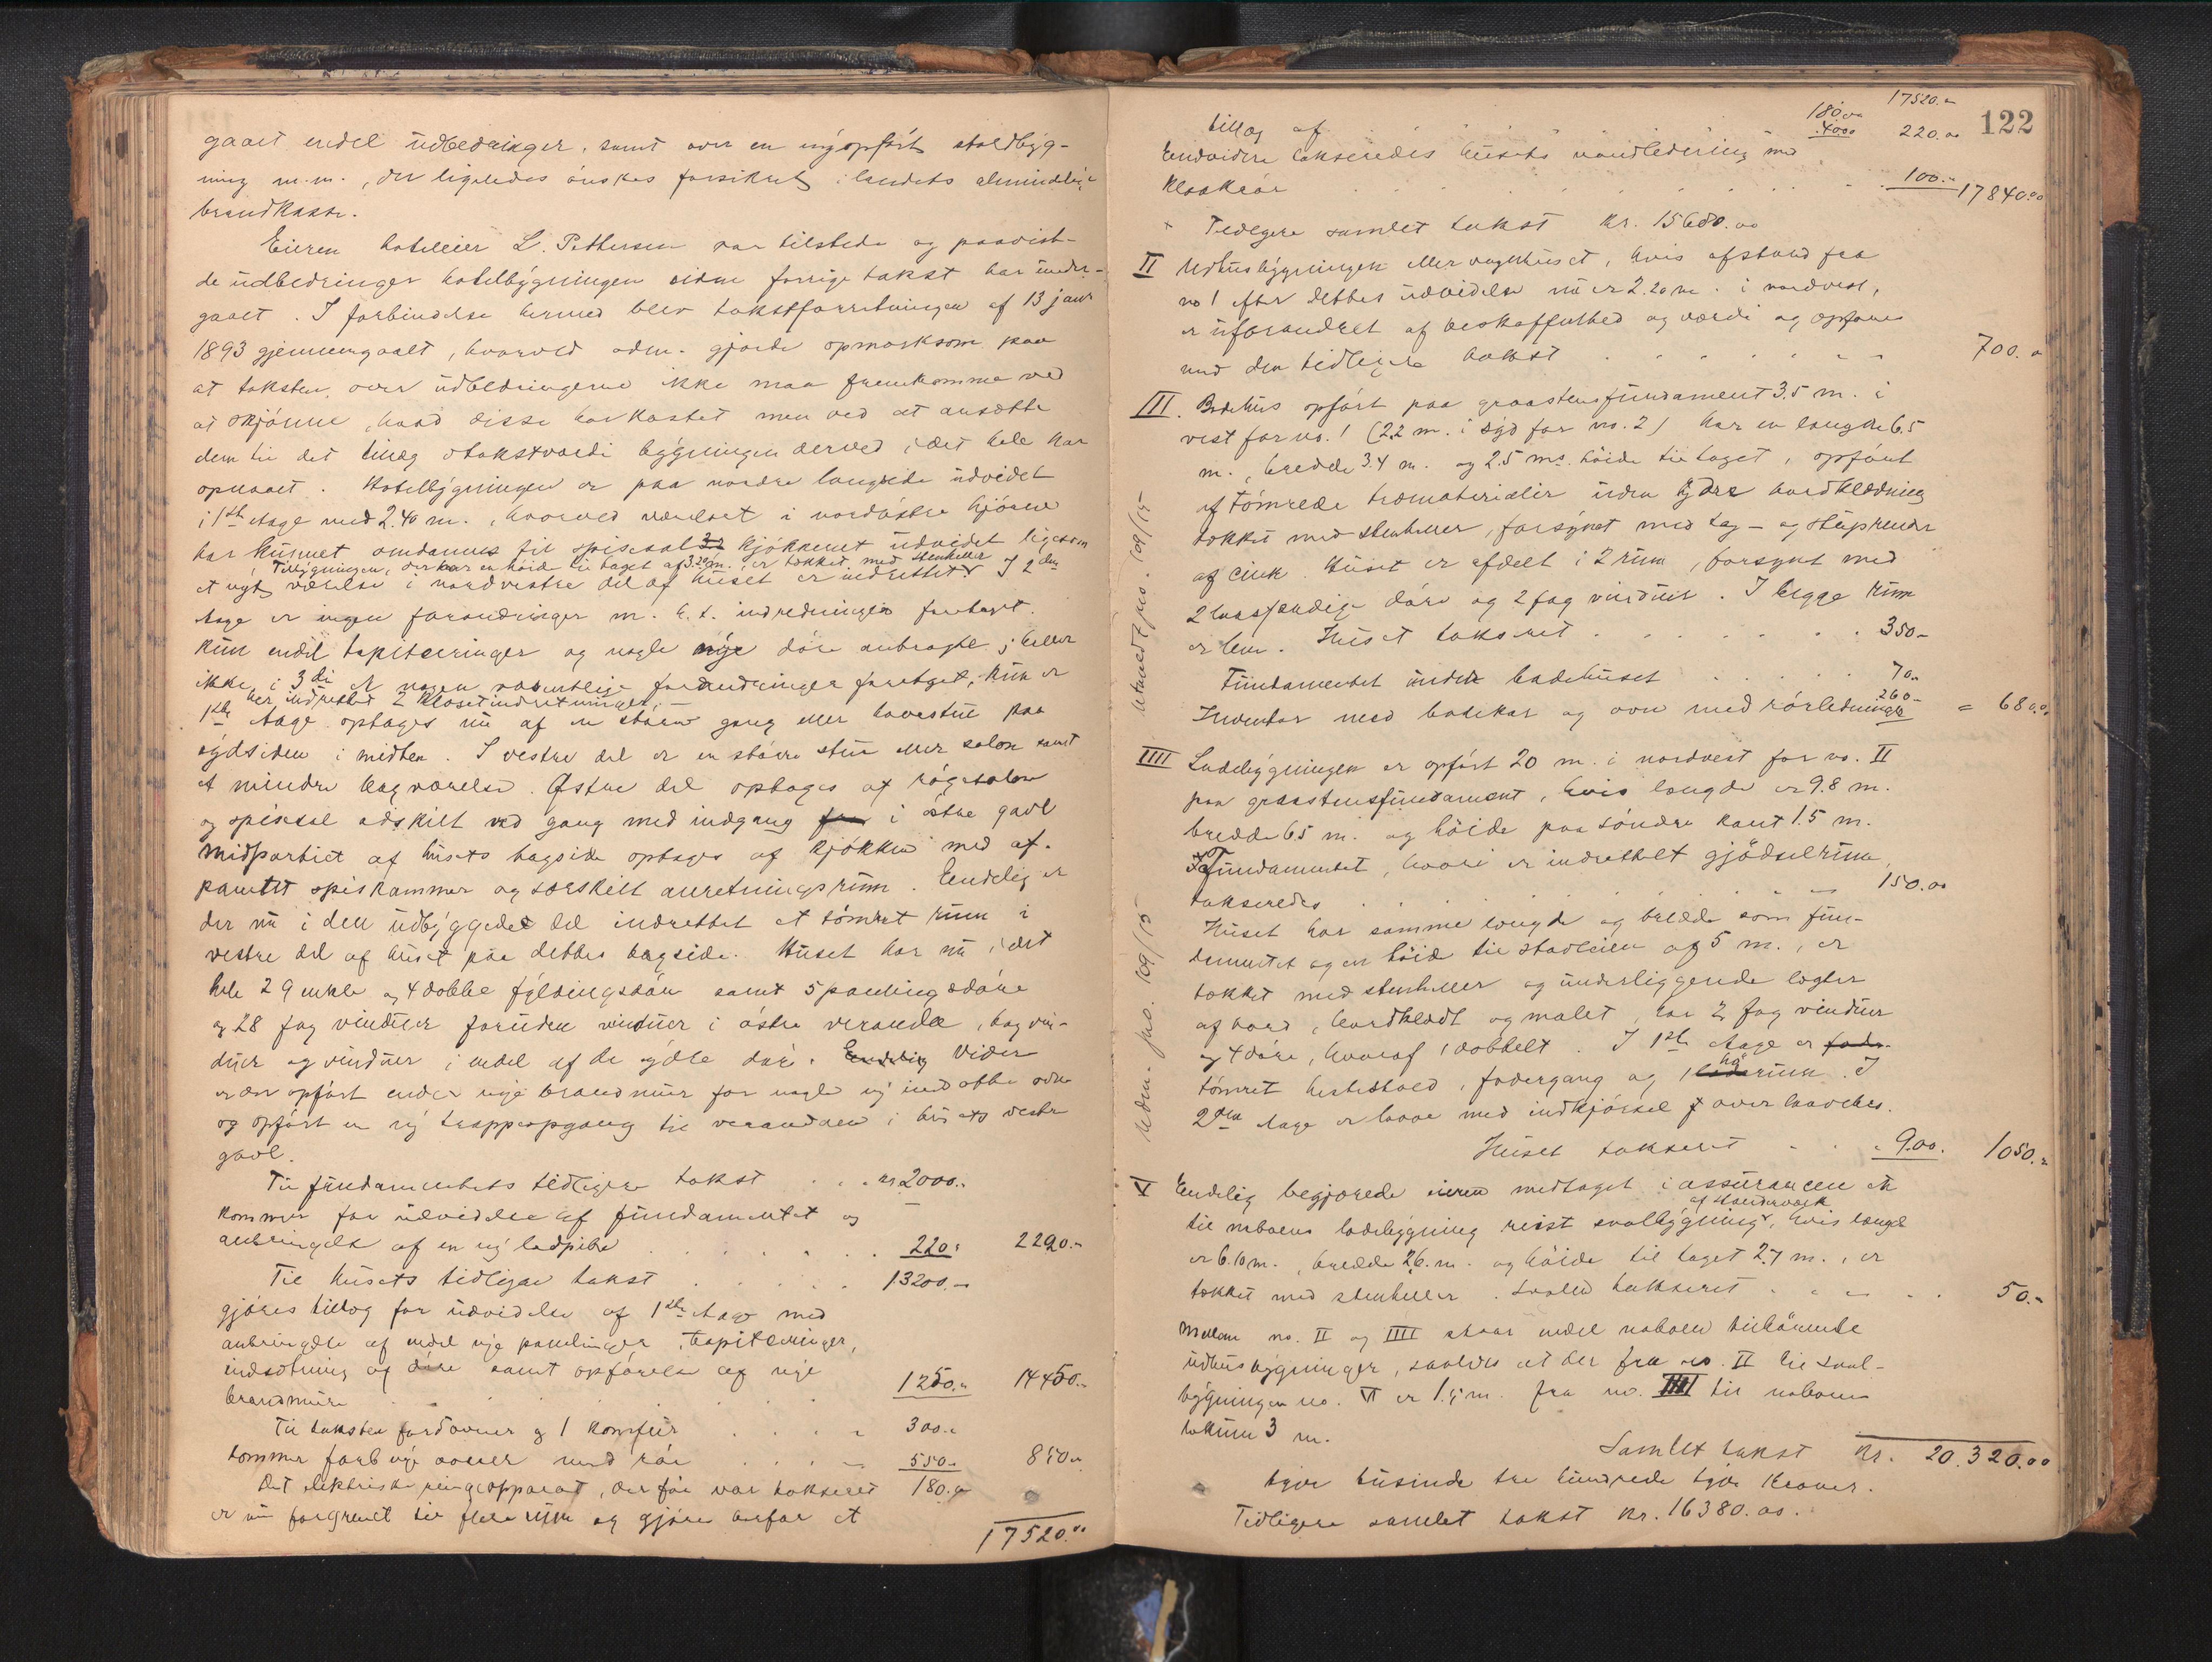 gaaet endel udbedringer, samt over en nyopført staldbyg-
ning m.m., der ligeledes ønskes forsikret i landets almindelige
brandkasse.
Eieren hoteleier L. Pettersen var tilstede og paavist-
de udbedringer hotelbygningen siden forrige takst har under-
gaaet. I forbindelse hermed blev takstforretningen af 13 janr
1893 gjennemgaaet, hvorved adm. gjorde opmærksom paa
at taksten over udbedringerne ikke maa fremkomme ved
at skjønne, hvad disse har kostet men ved at ansætte
dem til det tillæg i takstværdi bygningen derved i det hele har
opnaaet. Hotelbygningen er paa nordre langside udvidet
i 1ste etage med 2.40 m., hvorved værelset i nordøstre hjørne
har kunnet omdannes til spisesal kjøkkenet udvidet ligesom
Tilbygningen, der har en høide til taget af 3.20 m. er tækket med stenheller
et nyt værelse i nordvestre del af huset er indrettet. I 2den
etage er ingen forandringer m. h. t. indredningen foretaget.
Kun endel tapitseringer og nogle nye døre anbragte; heller
ikke i 3die er nogen væsentlige forandringer foretaget, kun er
her indrettet 2 klosetindretninger. —
1ste etage optages nu af en større gang eller havestue paa
sydsiden i midten. I vestre del er en større stue eller salon samt
et mindre bagværelse. Østre del optages af røgesalon
og spisesal adskilt ved gang med indgang i østre gavl
Midtpartiet af husets bagside optages af kjøkken med af-
panelet spiskammer og særskilt anretningsrum. Endelig er
der nu i den udbyggede del indrettet et tømret rum i
vestre del af huset paa dettes bagside. Huset har nu i det
hele 29 enkle og 4 doble fyldingsdøre samt 5 panelingsdøre
og 28 fag vinduer foruden vinduer i østre veranda, bagvin-
duer og vinduer i endel af de ydre døre. Endelig Videre
er der opført endel nye brandmure for nogle ny indsatte ovne
og opført en ny trappeopgang til verandaen i husets vestre
gavl.
Til fundamentets tidligere takst . . . kr 2000.-
kommer for udvidelse af fundamentet og
anbringelse af en ny ladpibe . . . 220.- 2220.-
Til husets tidligere takst . . . 13200.-
gjøres tillæg for udvidelse af 1ste etage med
anbringelse af endel nye panelinger, tapitseringer,
indsætning af døre samt opførelse af nye
brandmure . . . 1250.- 14450.-
Til taksten for ovner og 1 komfur . . . 300.-
kommer for 6 nye ovner med rør . . . 550.- 850.-
Det elektriske ringeapparat, der før var takseret 180.-
er nu forgrenet til flere rum og gjøres herfor et
17520.00
122
17520.-
180.00
tillæg af . . . 40.00 220.00
Endvidere takseredes husets vandledning med
kloakrør . . . 100.- 17840.00
Tidligere samlet takst kr. 15680.00
II Udhusbygningen eller vognhuset, hvis afstand fra
no 1 efter dettes udvidelse nu er 2.20 m. i nordvest,
er uforandret af beskaffenhed og værdi og opføres
med den tidligere takst . . . 700.-
III. Badehus opført paa graastensfundament 3.5 m. i
vest for no. 1 (2.2 m. i syd for no. 2) har en længde 6.5
m., bredde 3.4 m. og 2.5 ms. høide til taget, opført
af tømrede træmaterialier uden ydre bordklædning
tækket med stenheller, forsynet med tag- og stuprender
af cink. Huset er afdelt i 2 rum, forsynt med
2 døre og 2 fag vinduer. I begge rum
er Huset takseret . . . 350.-
Fundamentet under badehuset . . . 70.-
Inventar med badekar og ovn med rørledninger 260.- = 680.00
IIII Ladebygningen er opført 20 m. i nordvest for no. II
paa graastensfundament, hvis længde er 9.8 m.
bredde 6.5 m. og høide paa søndre kant 1.5 m.
Fundamentet, hvori er indrettet gjødselrum,
takseredes . . . 150.00
Huset har samme længde og bredde som fun-
damentet og en høide til stavleien af 5 m., er
tækket med stenheller og underliggende lægter
af bord, bordklædt og malet har 2 fag vinduer
og 4 døre, hvoraf 1 dobbelt. I 1ste etage er
tømret hestestald, fodergang og 1 hørum. I
2den etage er laave med indkjørsel over laavebro.
Huset takseret . . . 900. 1050.-
V Endelig begjærede eieren medtaget i assurancen et
til naboens ladebygning reist svalbygning af standerværk, hvis længde
er 6.10 m., bredde 2.6 m. og høide til taget 2.7 m., er
tækket med stenheller. Svalen takseret . . . 50.-
Mellem no. II og IIII staar endel naboen tilhørende
udhusbygninger, saaledes at der fra no. II til sval-
bygningen no. V er 1.5 m. fra no. IIII til naboens
lokum 3 m.
Samlet takst kr. 20.320.00
tyve tusinde tre hundrede tyve kroner.
Tidligere samlet takst kr. 16380.00.
Utmeldt jno. 109/15
Udm. jno. 109/15